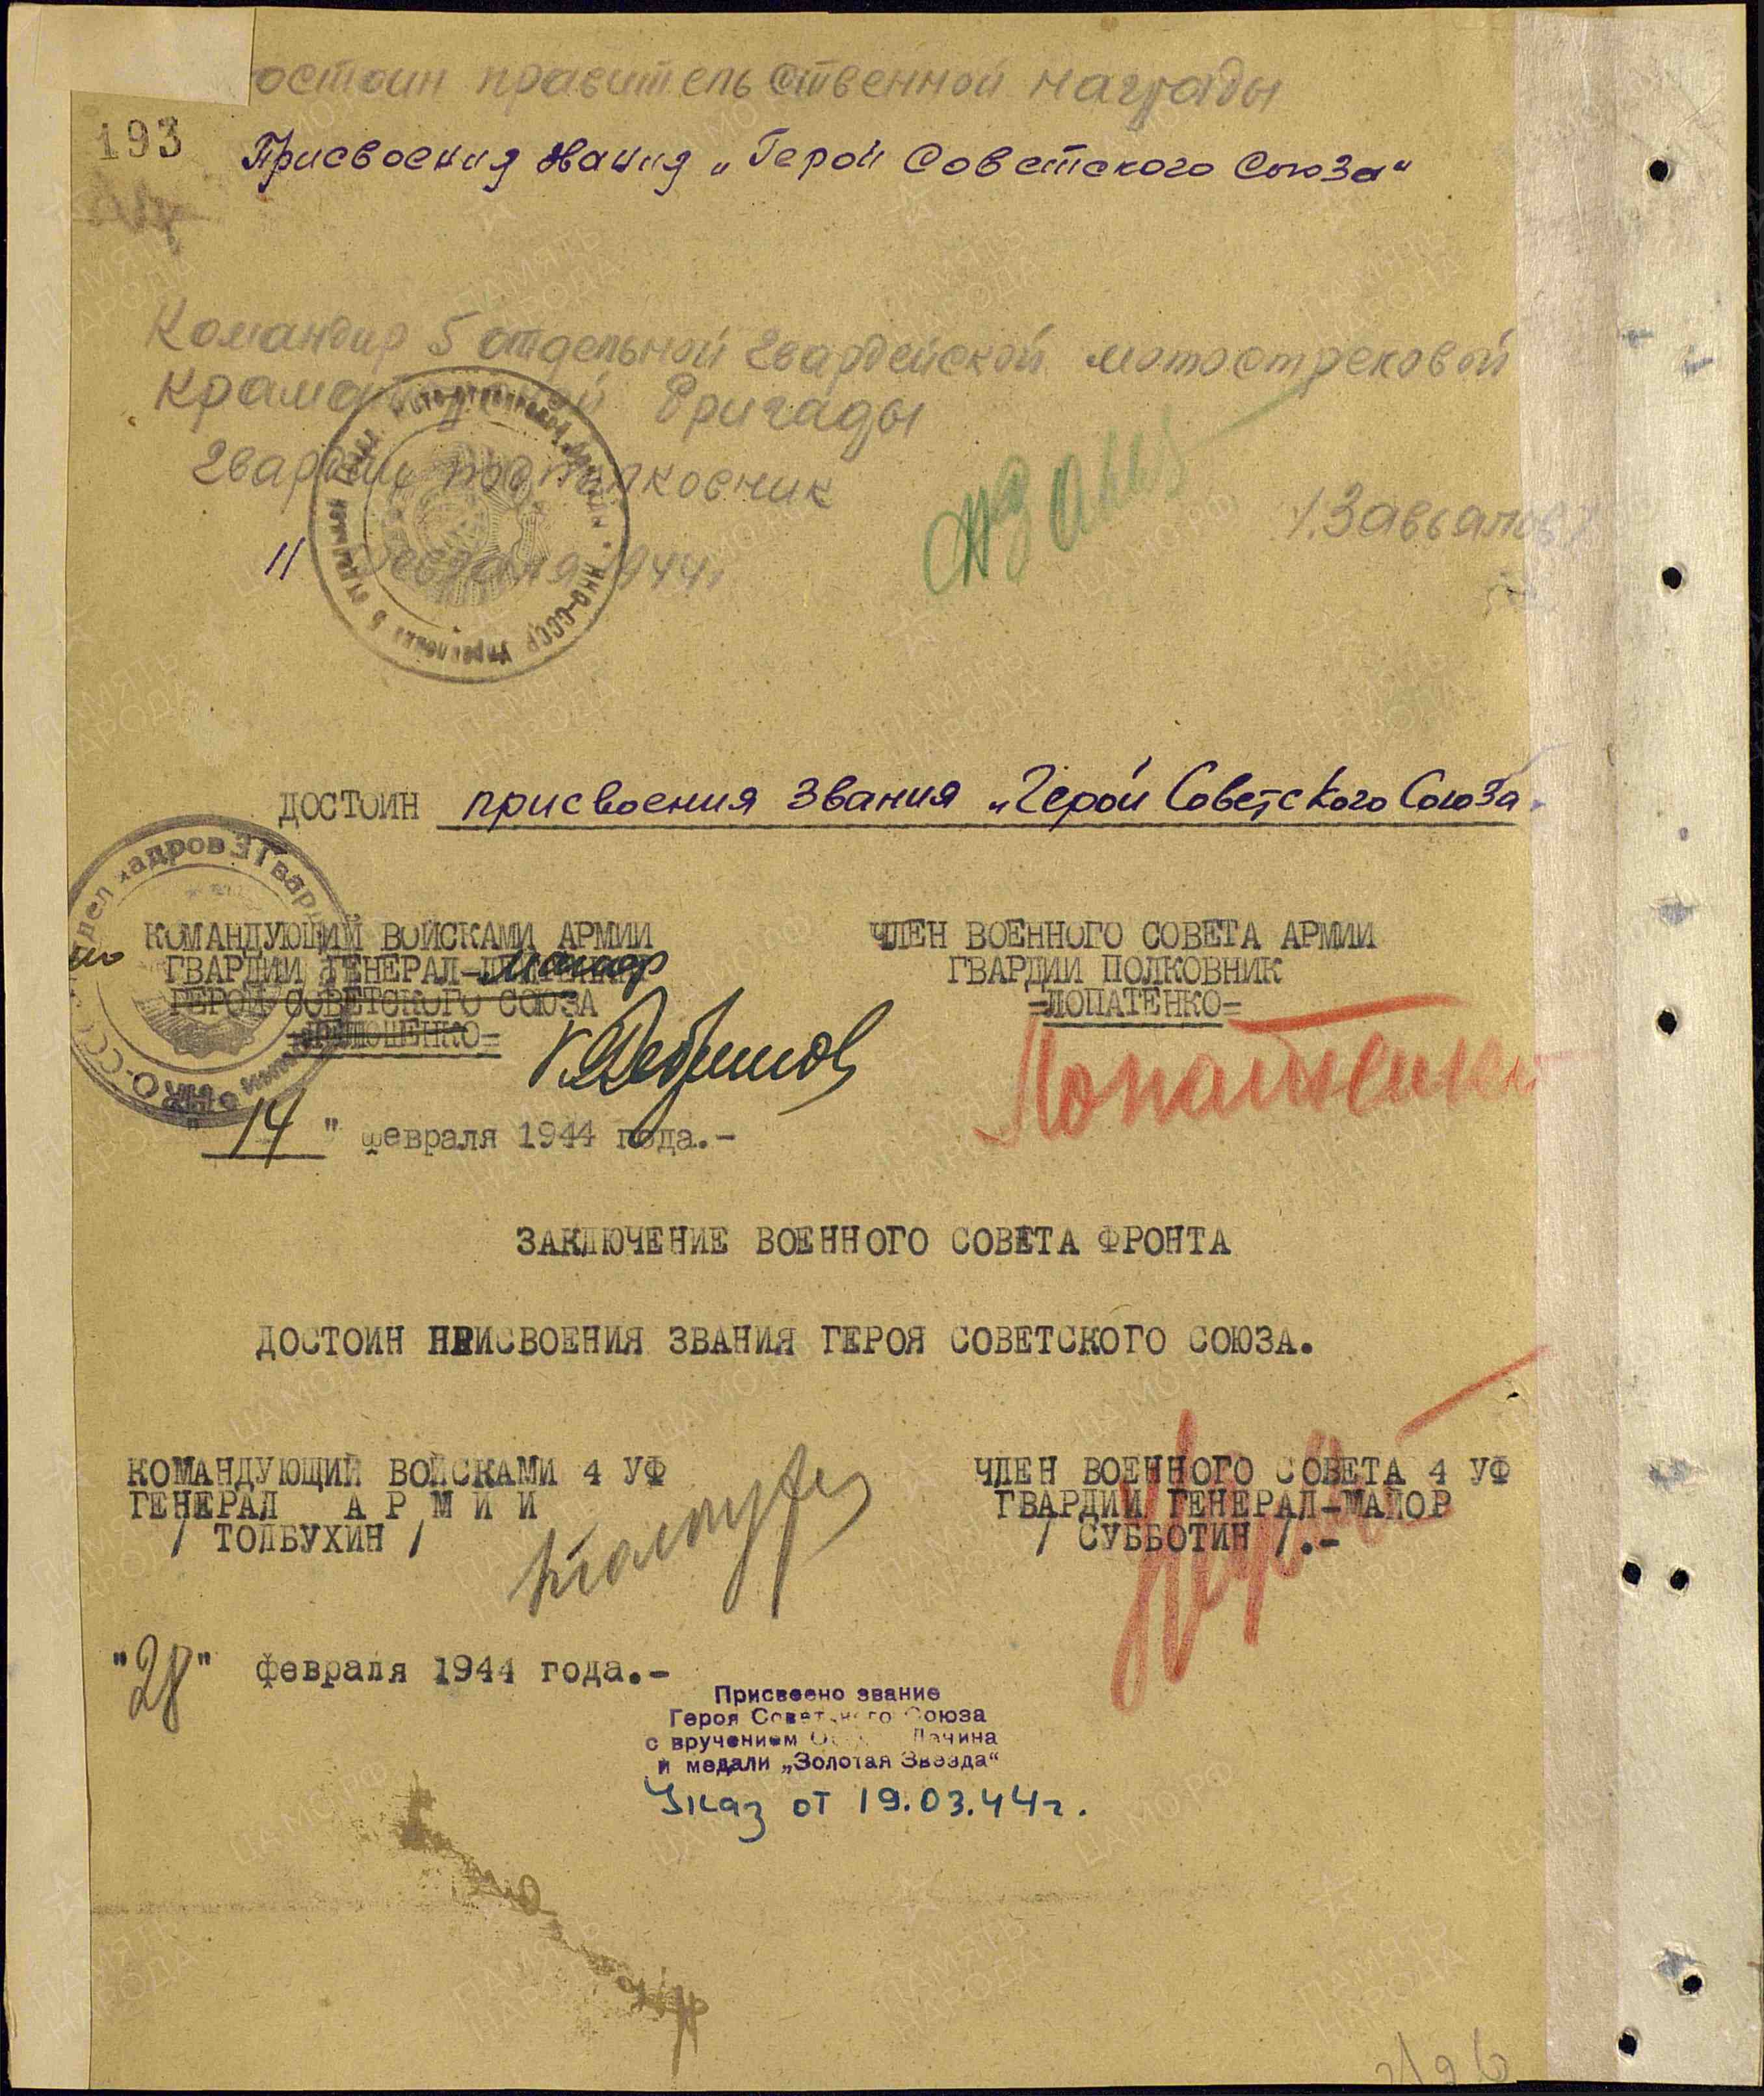 остоин правительственной награды
193
Присвоения звания „Герой Советского Союза“
Командир 5 отдельной гвардейской мотострелковой
Краматорской бригады
гвардии подполковник
/Завьялов/
11 февраля 1944г.
ДОСТОИН присвоения звания „Герой Советского Союза.
КОМАНДУЮЩИЙ ВОЙСКАМИ АРМИИ
ГВАРДИИ ГЕНЕРАЛ-майор
ГЕРОЙ СОВЕТСКОГО СОЮЗА
=ЛЕЛЮШЕНКО=
ЧЛЕН ВОЕННОГО СОВЕТА АРМИИ
ГВАРДИИ ПОЛКОВНИК
=ЛОПАТЕНКО=
"14" февраля 1944 года.-
ЗАКЛЮЧЕНИЕ ВОЕННОГО СОВЕТА ФРОНТА
ДОСТОИН ПРИСВОЕНИЯ ЗВАНИЯ ГЕРОЯ СОВЕТСКОГО СОЮЗА.
КОМАНДУЮЩИЙ ВОЙСКАМИ 4 УФ
ГЕНЕРАЛ АРМИИ
/ ТОЛБУХИН /
ЧЛЕН ВОЕННОГО СОВЕТА 4 УФ
ГВАРДИИ ГЕНЕРАЛ-МАЙОР
/ СУББОТИН /.-
"28" февраля 1944 года.-
Присвоено звание
Героя Советского Союза
с вручением Ленина
и медали „Золотая Звезда“
Указ от 19.03.44г.